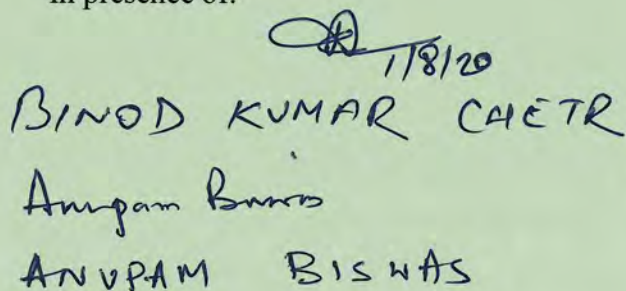 In presence of:
1/8/20
BINOD KUMAR CHETR
Anupam Biswas
ANUPAM BISWAS